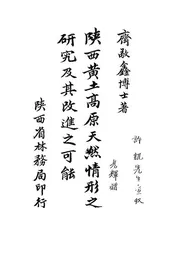 齊敬鑫博士著
陝西黃土高原天然情形之
研究及其改進之可能
陝西省林務局印行